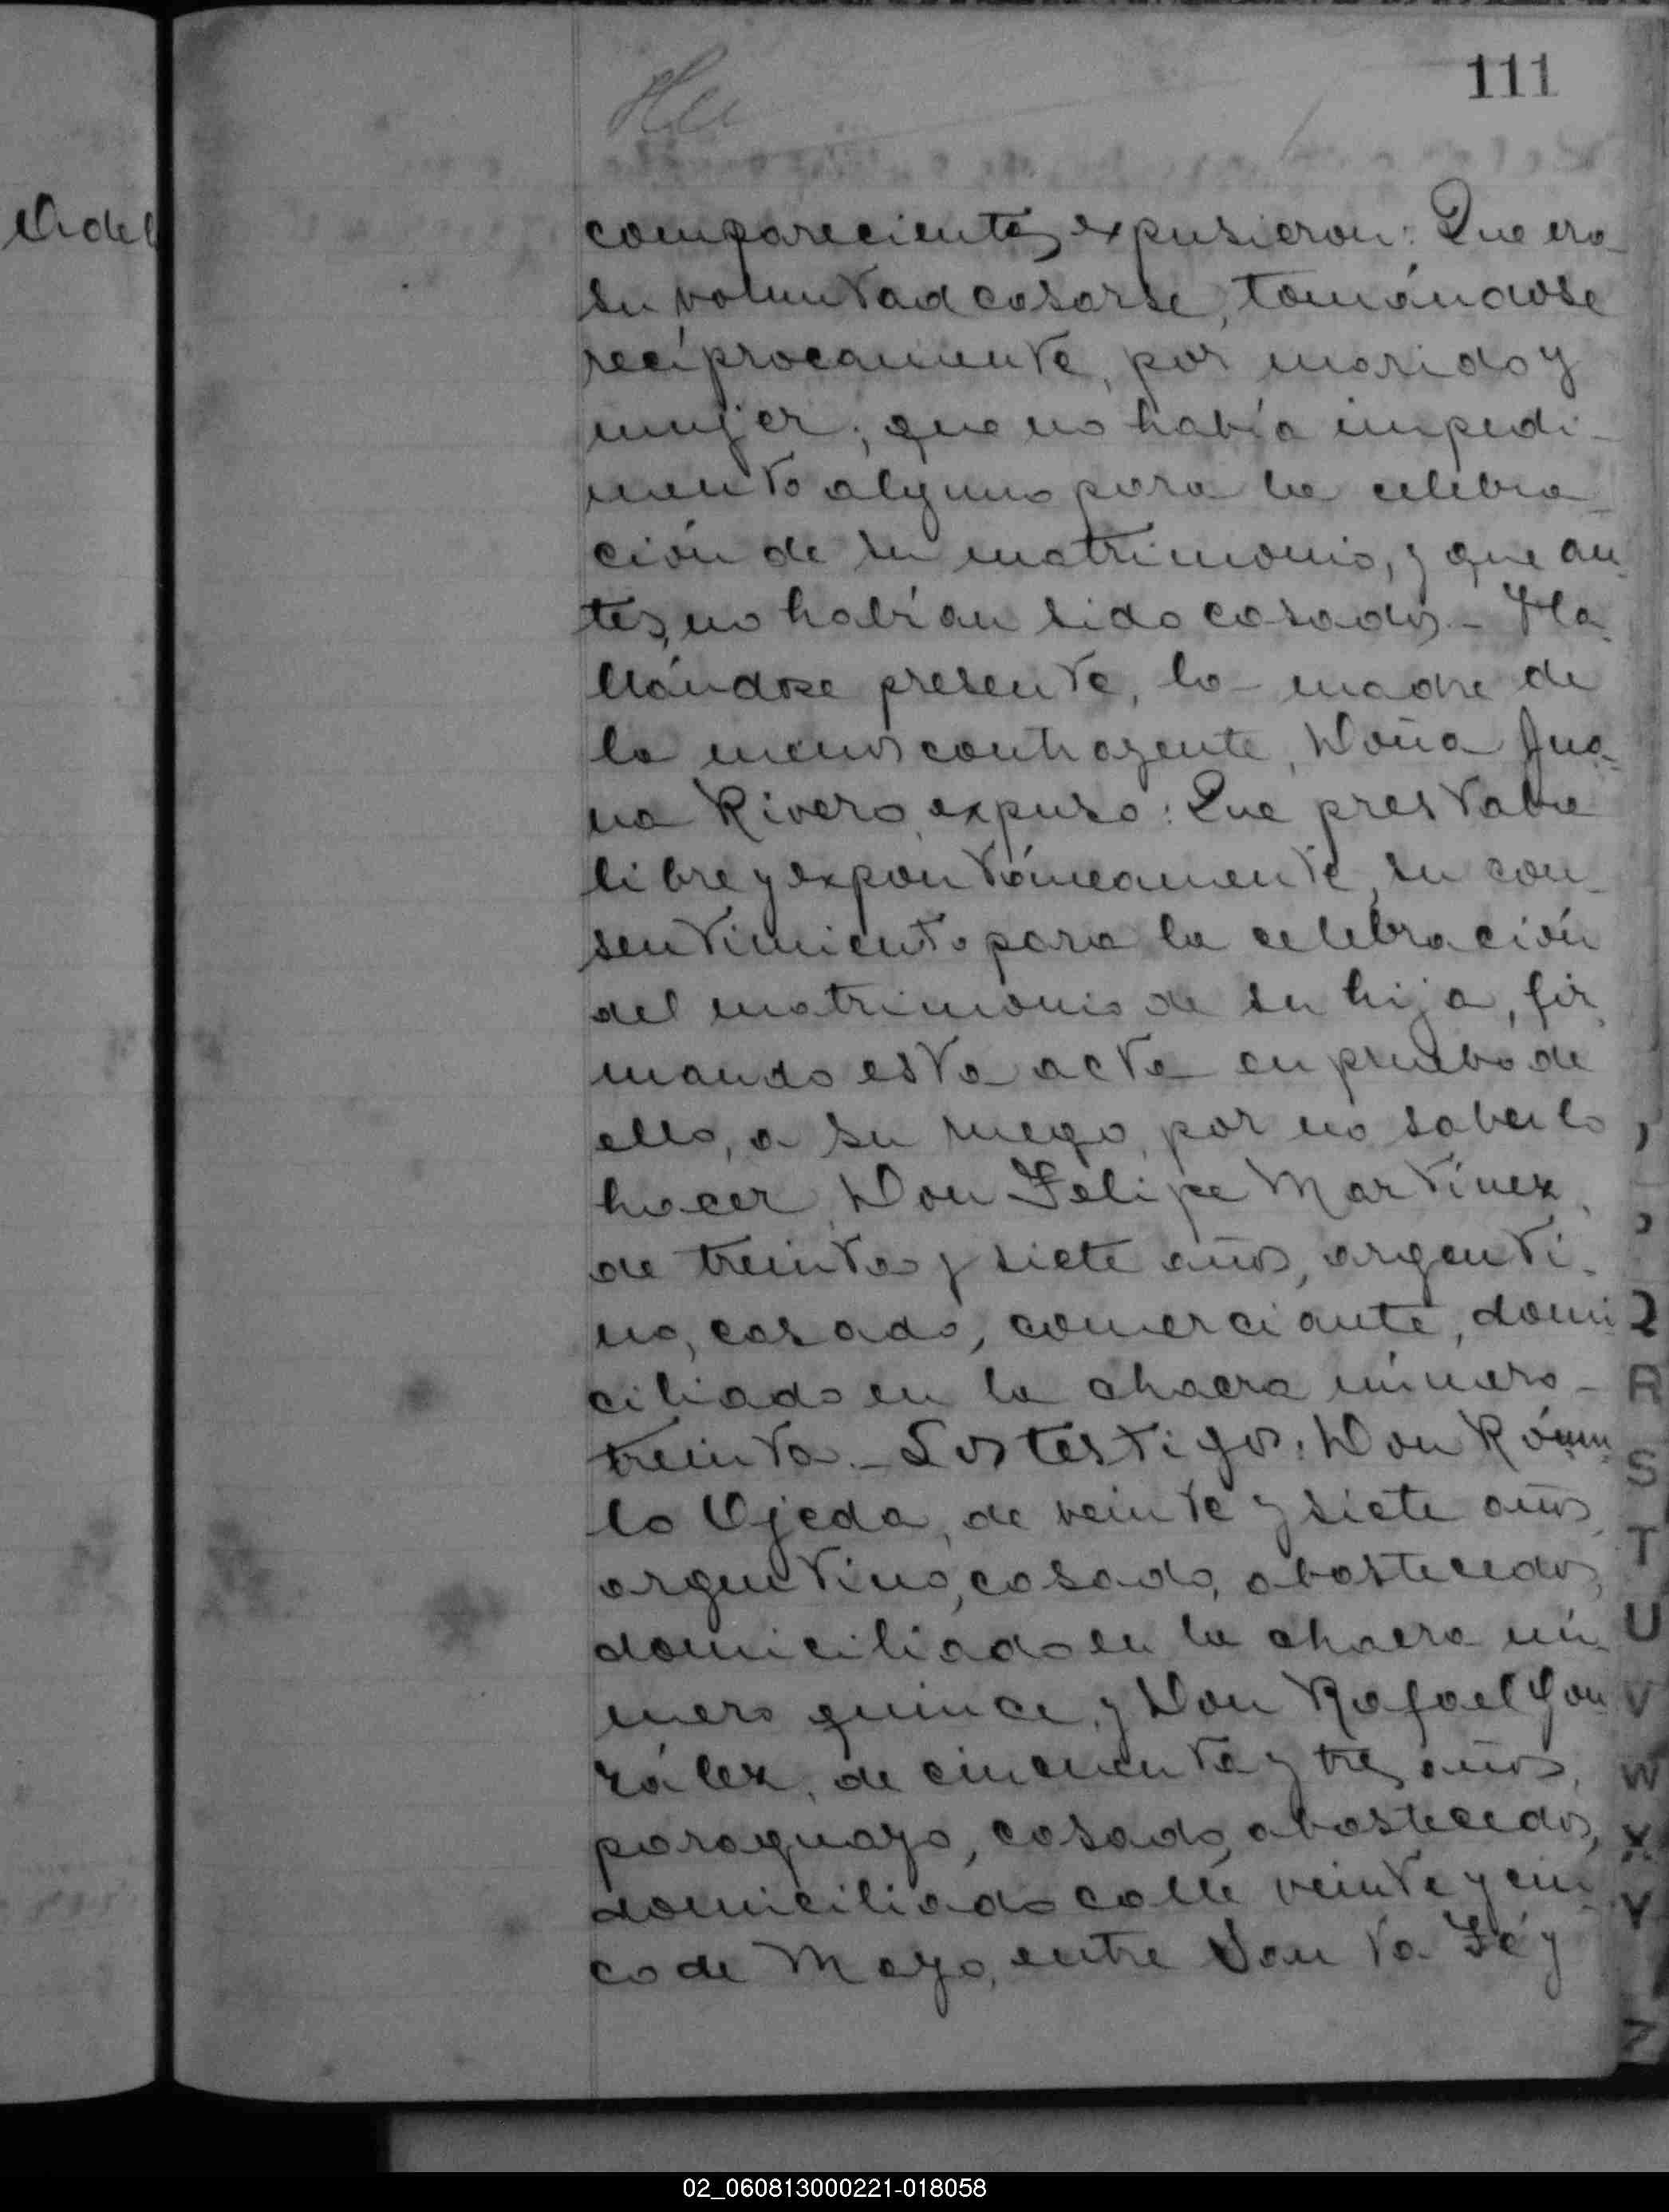 111
comparecientes expusieron: Que era
su voluntad casarse, tomándose
recíprocamente, por marido y
mujer; que no había impedi-
mento alguno para la celebra-
ción de su matrimonio, y que an-
tes, no habían sido casados.- Ha-
llándose presente, la madre de
la menor contrayente, Doña Jua-
na Rivero, expuso: Que prestaba
libre y expontáneamente, su con-
sentimiento para la celebración
del matrimonio de su hija, fir-
mando esta acta en prueba de
ello, a su ruego, por no saberlo
hacer, Don Felipe Martínez,
de treinta y siete años, argenti-
no, casado, comerciante, domi
ciliado en la chacra número-
treinta.- Los testigos: Don Rómu
lo Ojeda, de veinte y siete años,
argentino, casado, abastecedor,
domiciliado en la chacra nú-
mero quince, y Don Rafael Gon
zález, de cincuenta y tres años,
paraguayo, casado, abastecedor,
domiciliado calle veinte y cin-
co de Mayo, entre Santa Fé y
Q
R
S
T
U
V
W
X
Y
Z
02_060813000221-018058